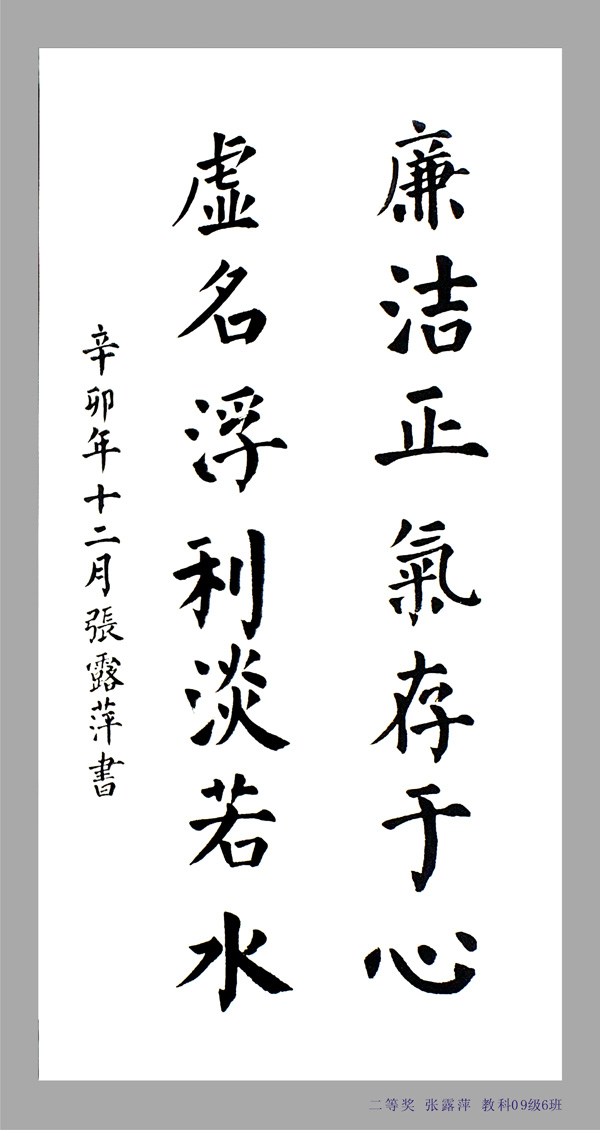 廉洁正氣存于心
虚名浮利淡若水
辛卯年十二月張露萍書
二等奖 张露萍 教科09级6班